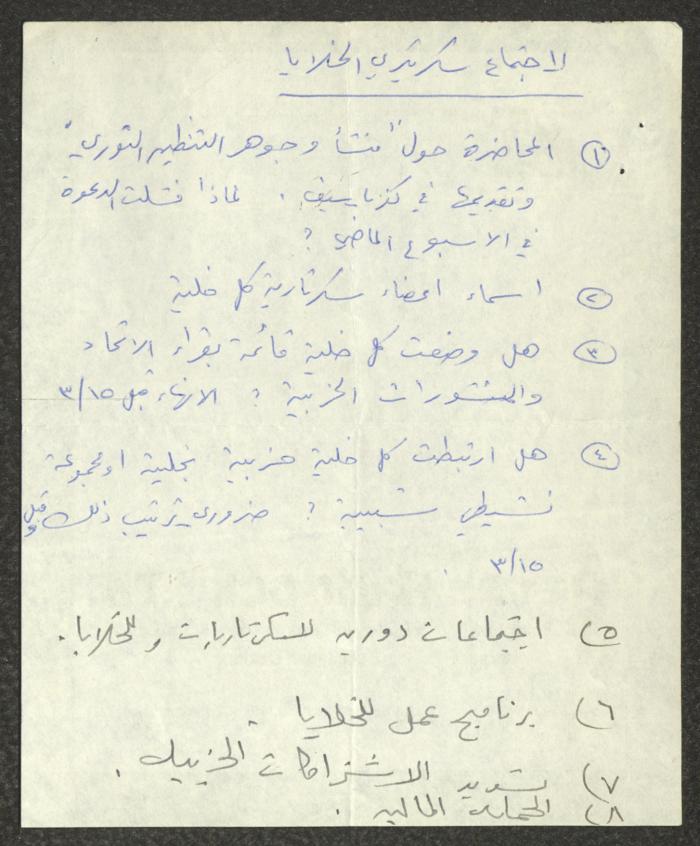 لاجتماع سكرتيري الخلايا
١) المحاضرة حول "منشأ وجوهر التنظير الثوري"
وتقديمها في كزبا سيف . لماذا فشلت الدعوة
في الاسبوع الماضي ؟
٢) اسماء اعضاء سكرتارية كل خلية
٣) هل وضعت كل خلية قائمة بقراء الاتحاد
والمنشورات الحزبية ؟ الانهاء قبل ٣/١٥
٤) هل ارتبطت كل خلية حزبية بخلية او مجموعة
نشيطي شبيبة ؟ ضروري ترتيب ذلك قبل
٣/١٥ .
٥) اجتماعات دورية للسكرتاريات وللخلايا .
٦) برنامج عمل للخلايا .
٧) تسديد الاشتراكات الحزبيه .
٨) الحملة الماليه .